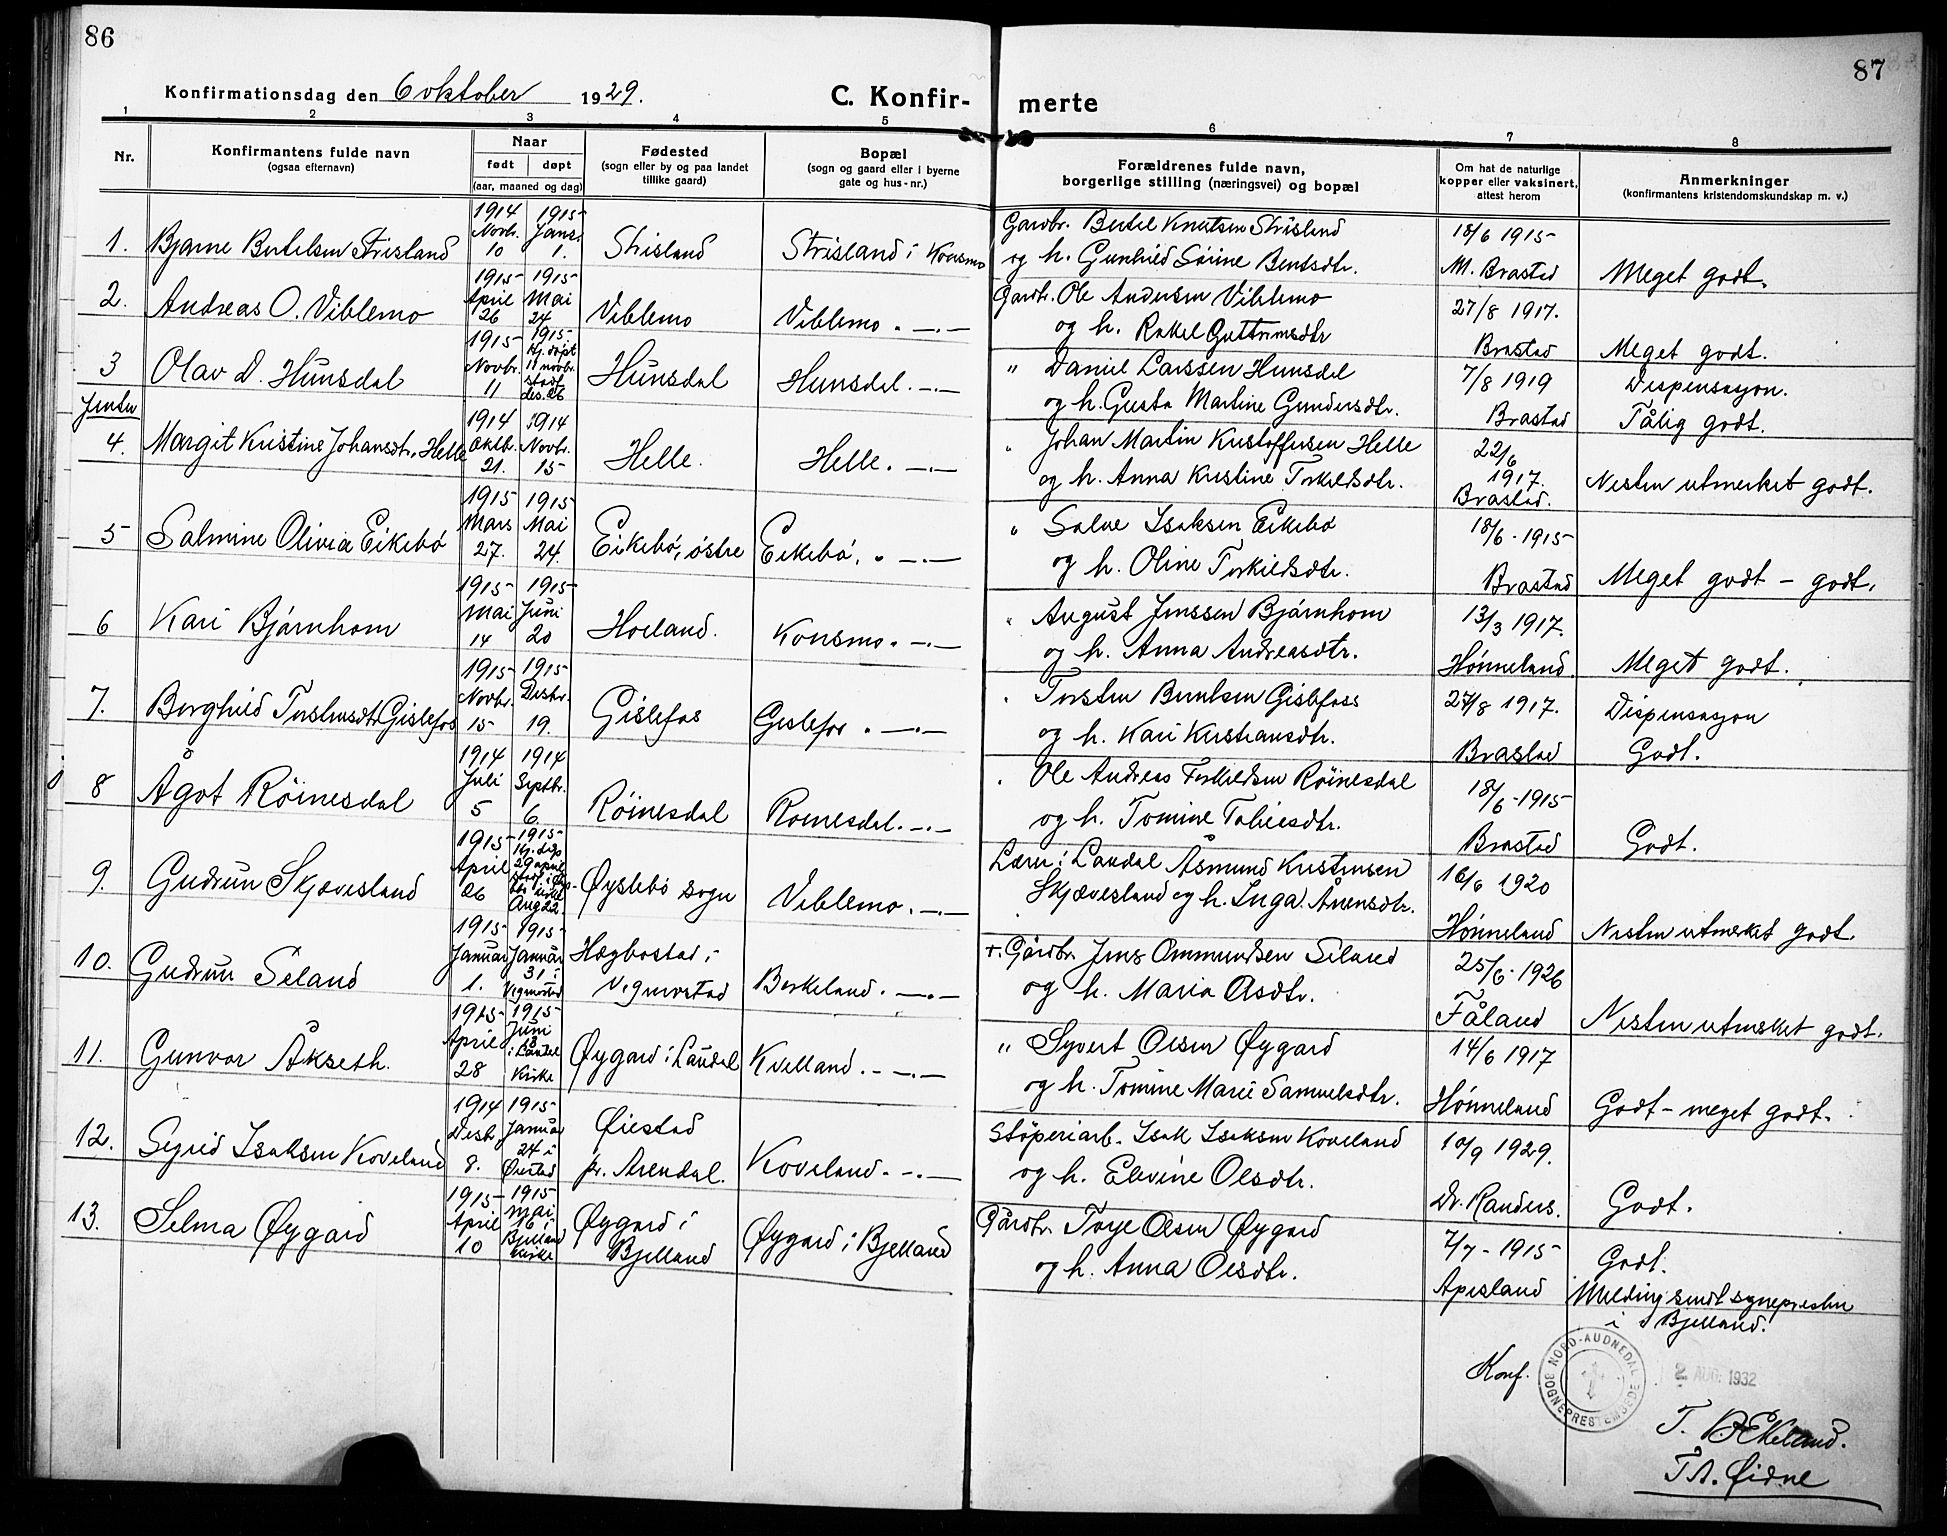 86
87
Konfirmationsdag den 6 oktober 1929.
C. Konfirmerte
1 2 3 4 5 6 7 8
Nr.
Konfirmantens fulde navn
(ogsaa efternavn)
Naar
født døpt
(aar, maaned og dag)
Fødested
(sogn eller by og paa landet
tillike gaard)
Bopæl
(sogn og gaard eller i byerne
gate og hus-nr.)
Forældrenes fulde navn,
borgerlige stilling (næringsvei) og bopæl
Om hat de naturlige
kopper eller vaksinert,
attest herom
Anmerkninger
(konfirmantens kristendomskundskap m. v.)
1. Bjarne Bertelsen Strisland 1914 Novbr. 10 1915 Jans. 1. Strisland Strisland i Konsmo
Gardbr. Bertel Knutsen Strisland
og h. Gunhild Sørine Bentsdtr.
18/6 1915
M. Brastad Meget godt.
2. Andreas O. Viblemo 1915 April 26 1915 Mai 24 Viblemo Viblemo. -.-
Gardbr. Ole Andersen Viblemo
og h. Rakel Guttrimsdtr
27/8 1917.
Brastad Meget godt.
3 Olav D. Hunsdal 1915 Novbr. 11 1915 Hj. døpt 11 novbr. stadf. des. 26 Hunsdal Hunsdal. -.-
" Daniel Larssen Hunsdal
og h. Gusta Martine Gundersdtr.
7/8 1919
Brastad
Dispensasjon.
Tålig godt.
Jenter
4. Margit Kristine Johansdtr. Helle 1914 Oktbr. 21. 1914 Novbr. 15 Helle. Helle. -.-
" Johan Martin Kristoffersen Helle
og h. Anna Kristine Torkildsdtr.
22/6
1917.
Brastad. Nesten utmerket godt.
5 Salmine Olivia Eikebø 1915 Mars 27. 1915 Mai 24. Eikebø, østre Eikebø. " -.-
" Salve Isaksen Eikebø
og h. Oline Torkildsdtr.
18/6 - 1915
Brastad Meget godt - godt.
6 Kari Bjårnhom 1915 Mai 14 1915 Juni 20 Holland. Konsmo. -.-
" August Jenssen Bjårnhom
og h. Anna Andreasdtr.
13/3 1917.
Hønneland. Meget godt.
7. Borghild Torstensdtr Gislefos 1915 Novbr. 15 1915 Desbr. 19. Gislefos Gislefos. -.-
" Torsten Berntsen Gislefoss
og h. Kari Kristiansdtr.
27/8 1917.
Brastad
Dispensasjon
Godt.
8 Ågot Röinesdal 1914 Juli 5 1914 Septbr. 6. Röinesdal Roinesdal. -.-
" Ole Andreas Torkildsen Röinesdal
og h. Tomine Tobiasdtr.
18/6 - 1915
Brastad Godt.
9. Gudrun Skjævesland 1915 April 26 1915 Hj. døp 29 april Aug 22. Øyslebø sogn Viblemo. -.-
Lærer i Laudal Åsmund Kristensen
Skjævesland og h. Inga Ånensdtr.
16/6 1920
Hønneland Nesten utmerket godt
10. Gudrun Seland 1915 Januar 1. 1915 Januar 31 i Vigmostad Hægbostad i Vigmostad Birkeland. -.-
+. Gårdbr. Jens Ommundsen Seland
og h. Maria Åsdtr.
25/6 - 1926
Fåland Nesten utmerket godt.
11. Gunvor Åkseth. 1915 April 28 1915 Juni 13 i Laudal Kirke Øygard i Laudal Kvelland. -.-
" Syvert Olsen Øygard
og h. Tomine Marie Samuelsdtr.
14/6 1917
Hønneland Godt - meget godt.
12. Sigrid Isaksen Koveland 1914 Desb. 8. 1915 Januar 24 i Øiestad Øiestad pr. Arendal. Koveland. -.-
Støperiarb. Isak Isaksen Koveland
og h. Elevine Olsdtr.
10/9 1929.
Dr. Randers. Godt.
13. Selma Øygard 1915 April 10 1915 Mai 16 i Bjelland kirke Øygard i Bjelland Øygard i Bjelland
Gårdbr. Torje Olsen Øygard
og h. Anna Olsdtr.
7/7 - 1915
Apesland
Godt.
Melding sendt sognepresten
i Bjelland.
Konf.
NORD-AUDNEDAL SOGNEPRESTEMBEDE
2 AUG. 1932
T. B. Ekeland.
T. A. Øidne